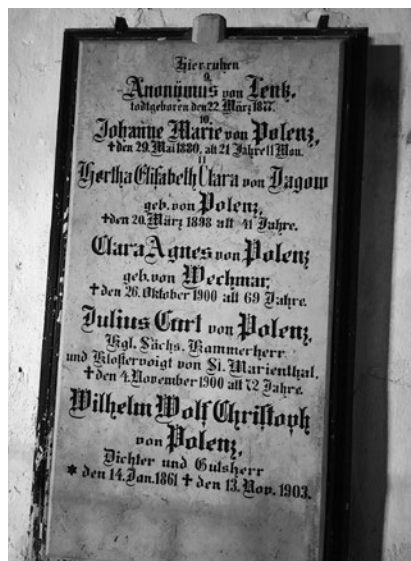 Hier ruhen
9.
Anonÿmus von Lenk,
todtgeboren den 22. März 1877.
10.
Johanne Marie von Polenz,
† den 29. Mai 1880, alt 21 Jahre 11 Mon.
11
Hertha Elisabeth Clara von Jagow
geb. von Polenz,
† den 20. März 1898 alt 41 Jahre.
Clara Agnes von Polenz
geb. von Wechmar,
† den 26. Oktober 1900 alt 69 Jahre.
Julius Curt von Polenz,
Kgl. Sächs. Kammerherr
und Klostervoigt von St. Marienthal,
† den 4. November 1900 alt 72 Jahre.
Wilhelm Wolf Christoph
von Polenz,
Dichter und Gutsherr
* den 14. Jan. 1861 † den 13. Nov. 1903.